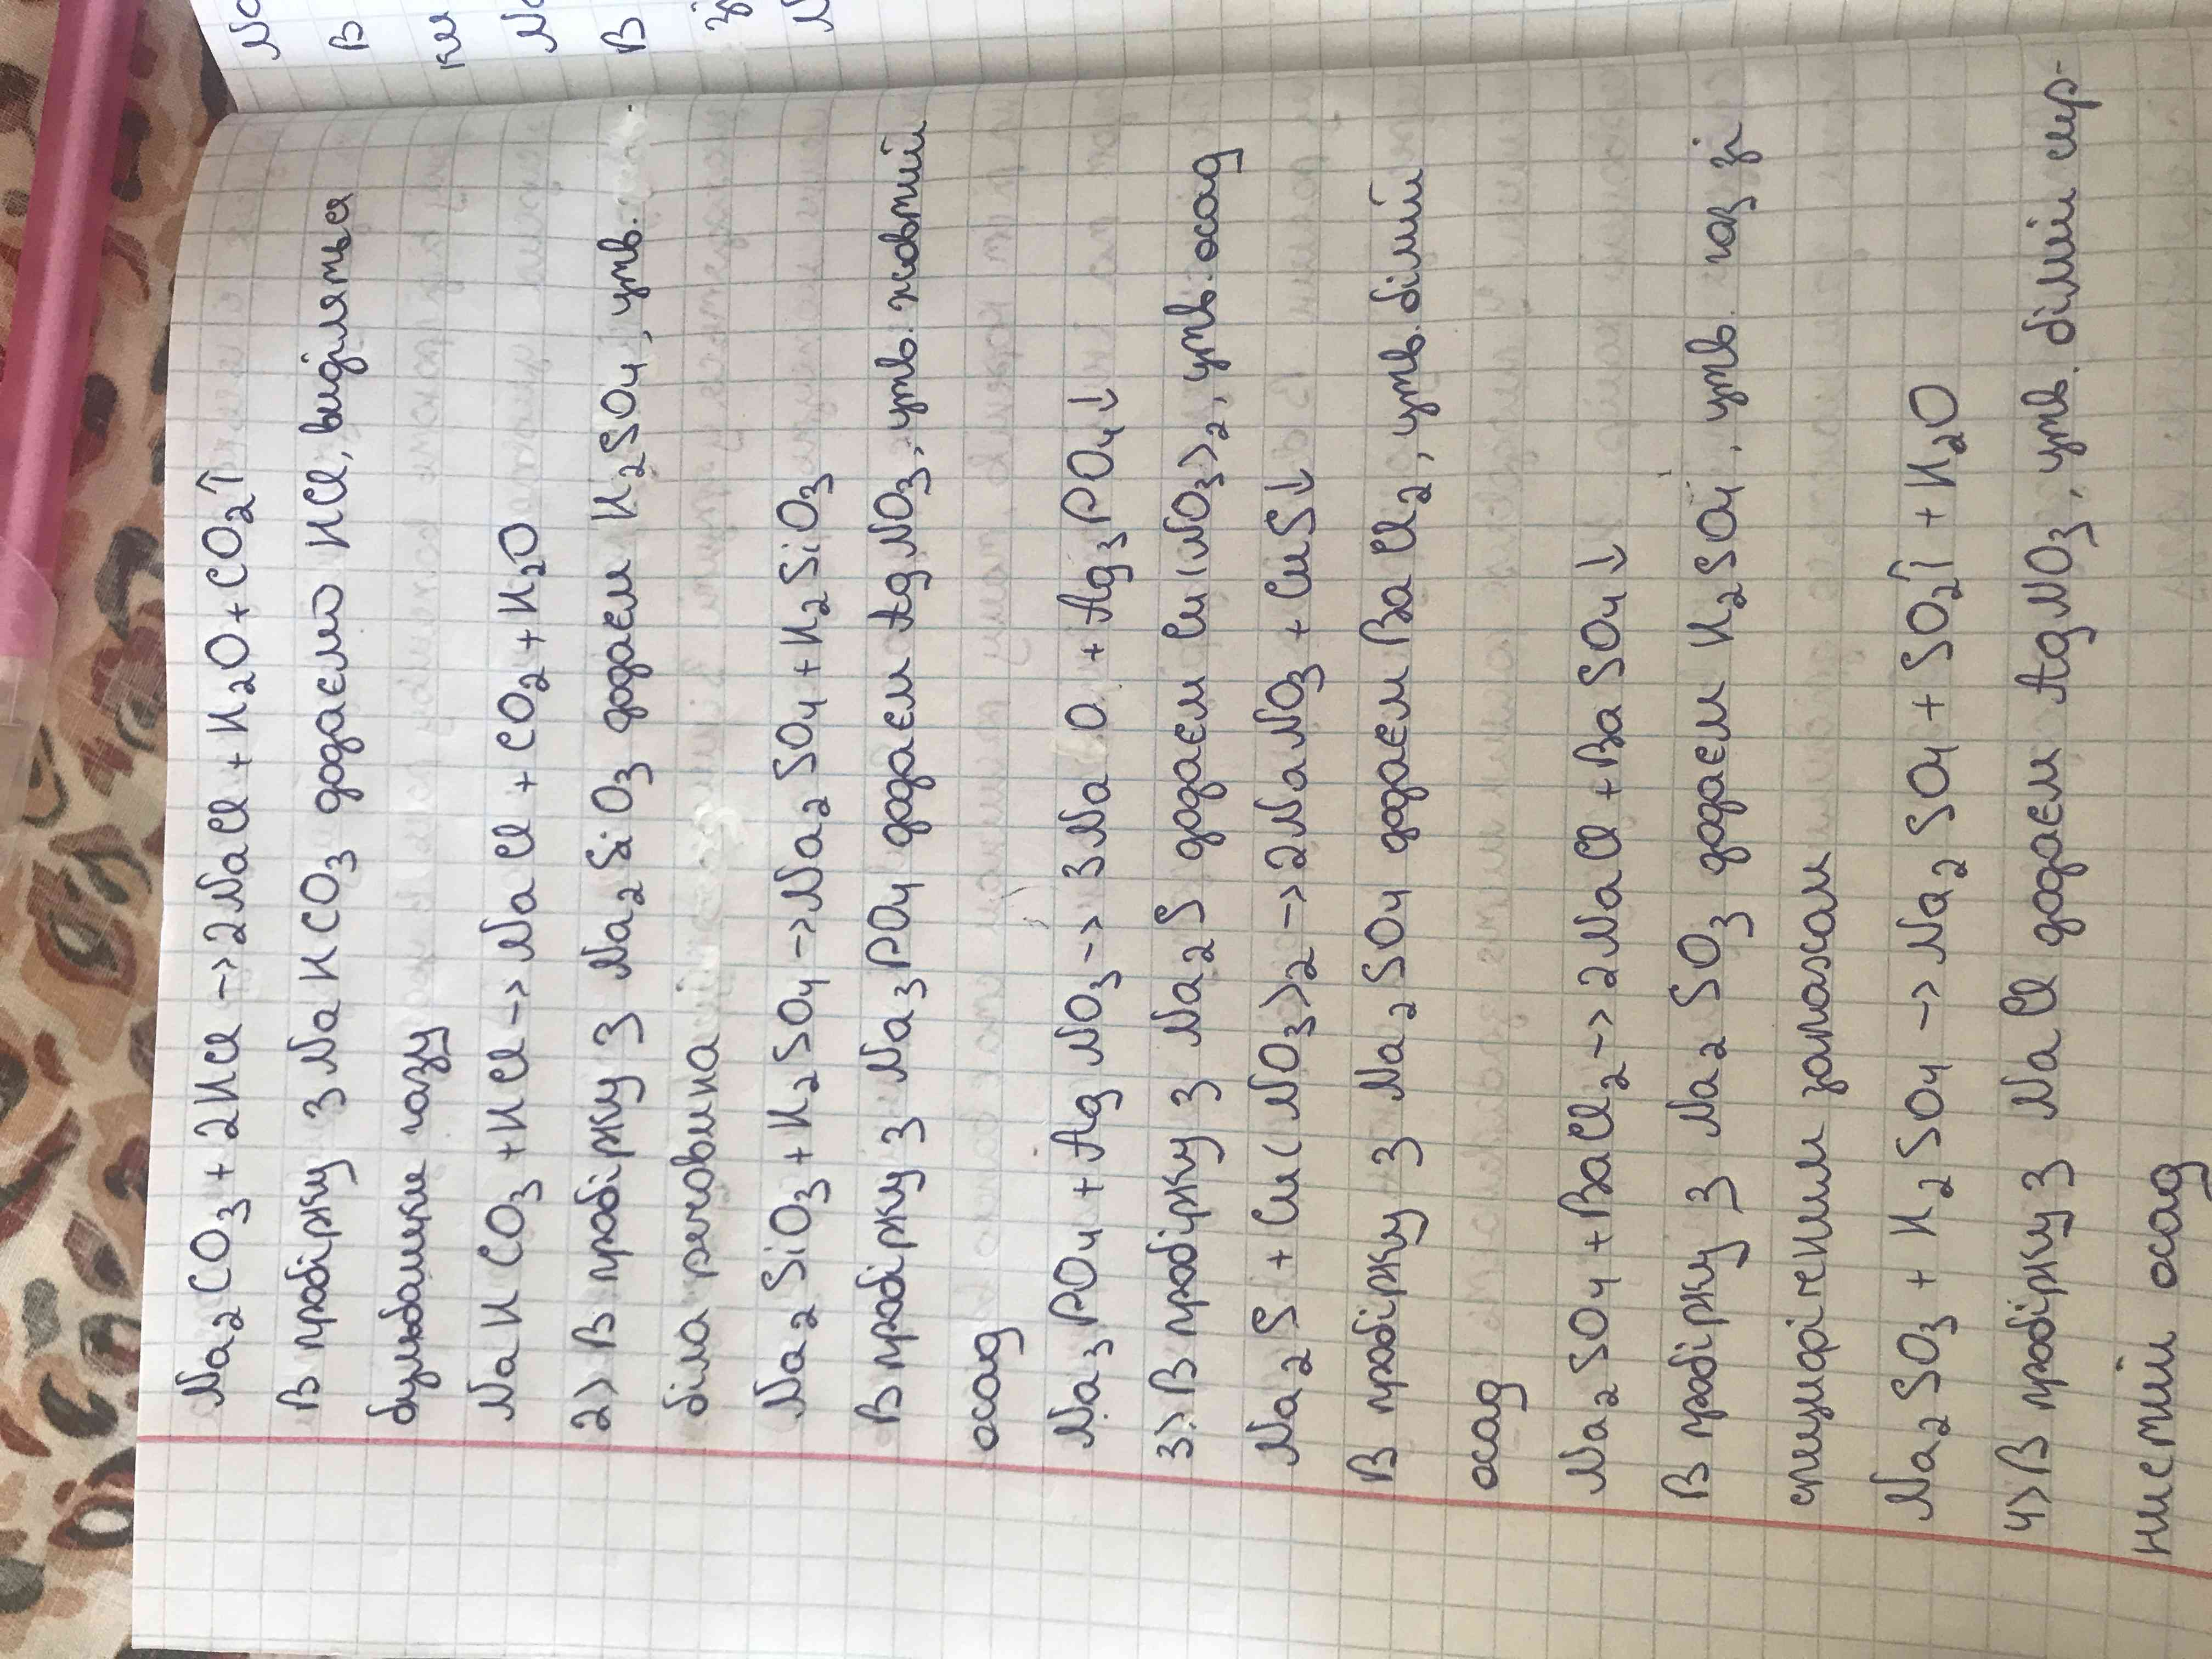 Na₂CO₃ + 2HCl → 2NaCl + H₂O + CO₂↑
В пробірку з NaHCO₃ додаємо HCl, виділяться
бульбашки газу
NaHCO₃ + HCl → NaCl + CO₂ + H₂O
2) В пробірку з Na₂SiO₃ додаєм H₂SO₄, утв.
біла речовина
Na₂SiO₃ + H₂SO₄ → Na₂SO₄ + H₂SiO₃
В пробірку з Na₃PO₄ додаєм AgNO₃, утв. жовтий
осад
Na₃PO₄ + AgNO₃ → 3Na O + Ag₃PO₄↓
3) В пробірку з Na₂S додаєм Cu(NO₃)₂, утв. осад
Na₂S + Cu(NO₃)₂ → 2NaNO₃ + CuS↓
В пробірку з Na₂SO₄ додаєм BaCl₂, утв. білий
осад
Na₂SO₄ + BaCl₂ → 2NaCl + BaSO₄↓
В пробірку з Na₂SO₃ додаєм H₂SO₄, утв. газ зі
специфічним запахом
Na₂SO₃ + H₂SO₄ → Na₂SO₄ + SO₂↑ + H₂O
4) В пробірку з NaCl додаєм AgNO₃, утв. білий сир-
нистий осад